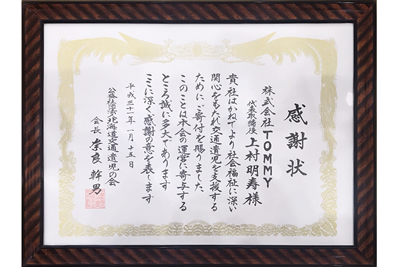 感謝状
株式会社TOMMY
代表取締役 上村明寿様
貴社はかねてより社会福祉に深い
関心をもたれ交通遺児を支援する
ためにご寄付を賜りました
このことは本会の運営に寄与する
ところ誠に多大であります
ここに深く感謝の意を表します
平成三十一年一月十五日
公益社団法人北海道交通遺児の会
会長 奈良幹男